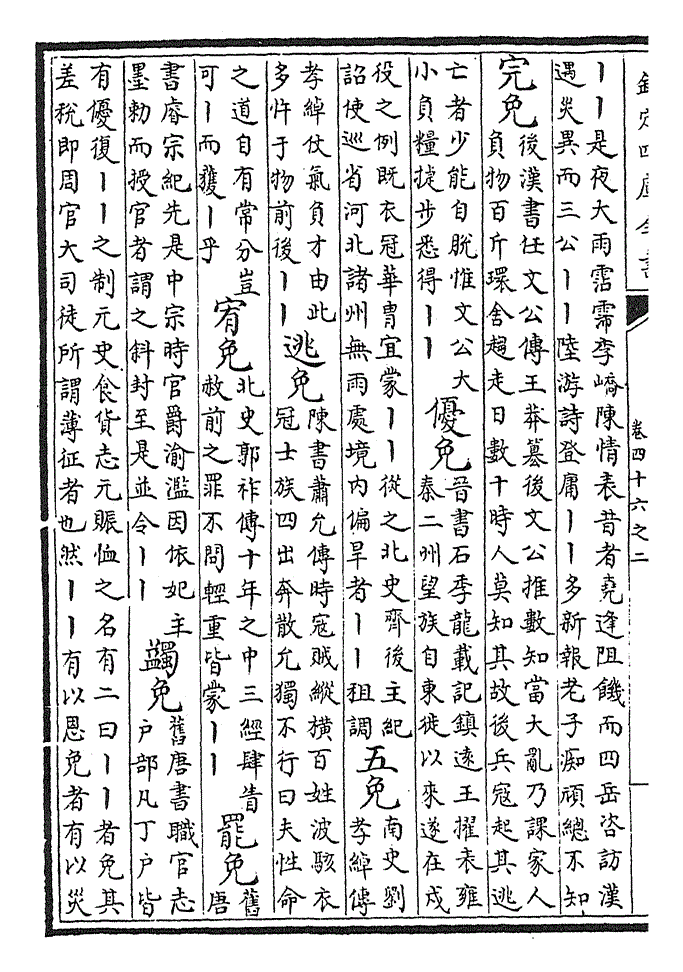 欽定四庫全書
卷四十六之二
丨丨是夜大雨霑霈李嶠陳情表昔者堯逢阻饑而四岳咨訪漢
遇災異而三公丨丨陸游詩登庸丨丨多新報老子痴頑總不知
完免
後漢書任文公傳王莽篡後文公推數知當大亂乃課家人
負物百斤環舍趨走日數十時人莫知其故後兵寇起其逃
亡者少能自脫惟文公大
小負糧捷步悉得丨丨
優免
晉書石季龍載記鎮遠王擢表雍
秦二州望族自東徙以來遂在戍
役之例既衣冠華胄宜蒙丨丨從之北史齊後主紀
詔使巡省河北諸州無雨處境内偏旱者丨丨租調
五免
南史劉
孝綽傳
孝綽仗氣負才由此
多忤于物前後丨丨
逃免
陳書蕭允傳時寇賊縱橫百姓波駭衣
冠士族四出奔散允獨不行曰夫性命
之道自有常分豈
可丨而獲丨乎
宥免
北史郭祚傳十年之中三經肆眚
赦前之罪不問輕重皆蒙丨丨
罷免
舊
唐
書睿宗紀先是中宗時官爵渝濫因依妃主
墨勅而授官者謂之斜封至是並令丨丨
蠲免
舊唐書職官志
户部凡丁户皆
有優復丨丨之制元史食貨志元賑恤之名有二曰丨丨者免其
差税即周官大司徒所謂薄征者也然丨丨有以恩免者有以災